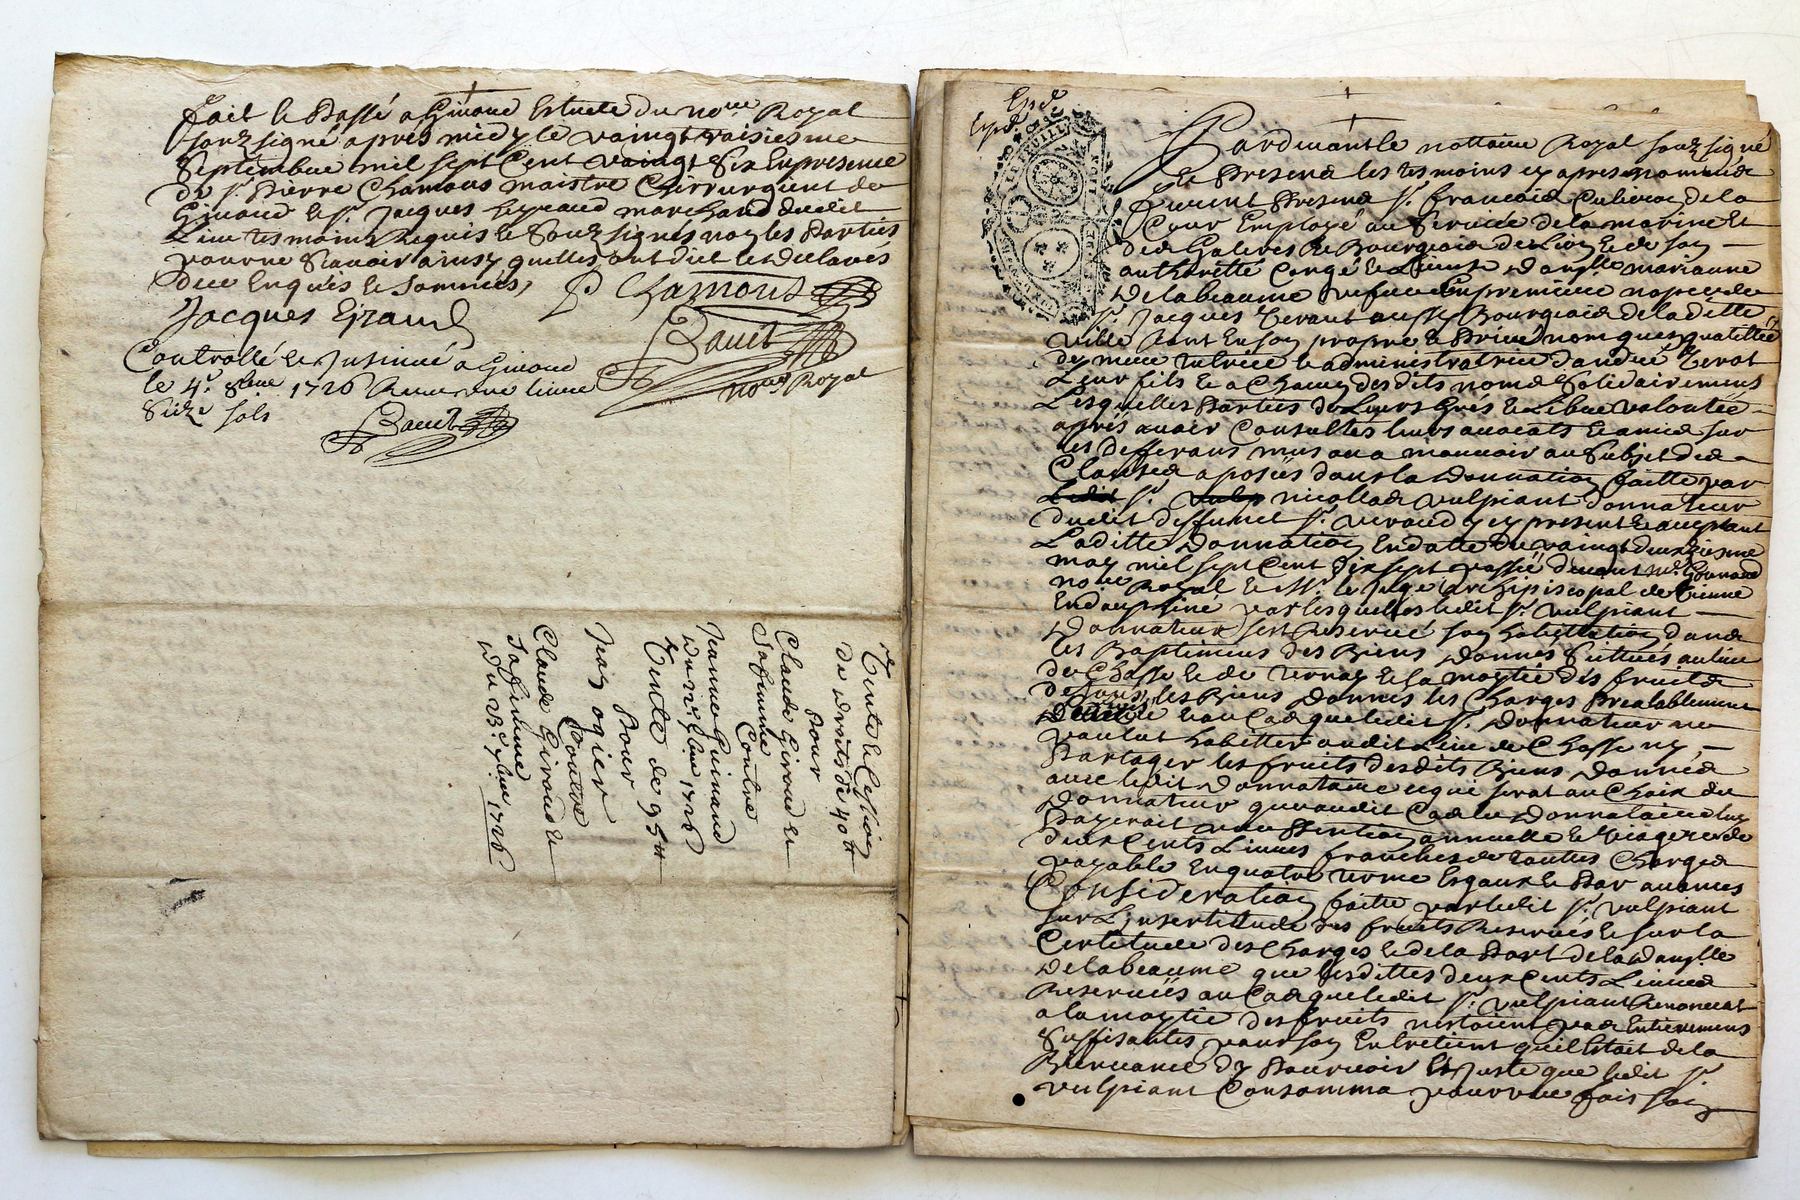 fait & passé a Givord Estude du no.re Royal
souz signé aprés midy le vaingt troisiesme
Septembre mil sept Cent vaingt Six En presence
de s.r Pierre Chamous maistre Chirrurgient de
Givord & s.r Jacques Eyraud marchand dudit
Lieu tesmoins Requis & Souz signés non les Parties
pour ne sçavoir ainsy quelles ont dict & declarés
de ce Enquis & Sommés,
P Chamous
Jacques Eyraud
Bauit
no.re Royal
Controllé & Insinué a Givord
le 4.e 8bre 1726 Receu une livre
Seize sols
Bauit
Vente & Cession
de droits de 40 tt
Pour
Claude Giroud &
Sa femme
Contre
Jeanne Guinand
Du 22.e 7bre 1726
Vente de 95 tt
Pour
Jean ogier
Contre
Claude Giroud &
Sa femme
Du 23.e 7bre 1726
Exp.é
Exp.é
Pardevant le nottaire Royal souz signé
& Presend les tesmoins cy apres nommés
furent Presend s.r francois de la
Cour Employé au Service de la marine Et
des Galeres & Bourgeois de Lion & de son
authorité Congé & Licence dam.lle marianne
Delabeaume vefve En premiere nopce de
s.r Jacques verant aussy Bourgeois de la ditte
ville tant En son propre & Privé nom que quallitté
de mere tutrice & administratrice dandré verat
Leur fils & a Chacun desdits noms Solidairement
Lesquelles Parties de Leurs Grés & Libre volontée
aprés avoir Consultés leurs avocats & amis sur
les differans mus ou a mouvoir au Subjet des
Clauses aposées dans la donnation faitte par
s.r nicollas vulpiant donnateur
dudit deffunct s.r veraud y cy present & acceptant
Laditte donnation En datte du vaingt deuxiesme
may mil sept Cent dix sept passé devant m.e
no.re Royal & M.r le Juge archipiscopal de vienne
En dauphiné par lesquelles ledit s.r vulpiant
Donnateur sest Reservé son habittation dans
les Baptiments des Biens donnés Scittués au lieu
de Chasse & de vernay & la moytié des fruits
de tous les Biens donnés les Charges Prealablement
& au Cas que ledit s.r donnateur ne
voulut habitter audit Lieu de Chasse ny
Partager les fruits desdits Biens donnés
avec ledit donnataire ce qui serat au Choix du
donnateur quaudit Cas le donnataire luy
Payerait une Pention annuelle & viagere de
deux Cents Livres franches de toutes Charges
payable En quatre terme Esgaux & Par avances
Consideration faitte par ledit s.r vulpiant
sur Linsertitude des fruits Reservés & sur la
Certitude des Charges & de la Part de la dam.lle
Delabeaume que lesdittes deux Cents Livres
Reservées au Cas que ledit s.r vulpiant Renoncat
a la moytié des fruits nestoient pas Entierement
Suffisantes pour son Entretient quil Estait de la
Bienseance dy Pourvoir Et Juste que ledit s.r
vulpiant Consomma pour une fois son